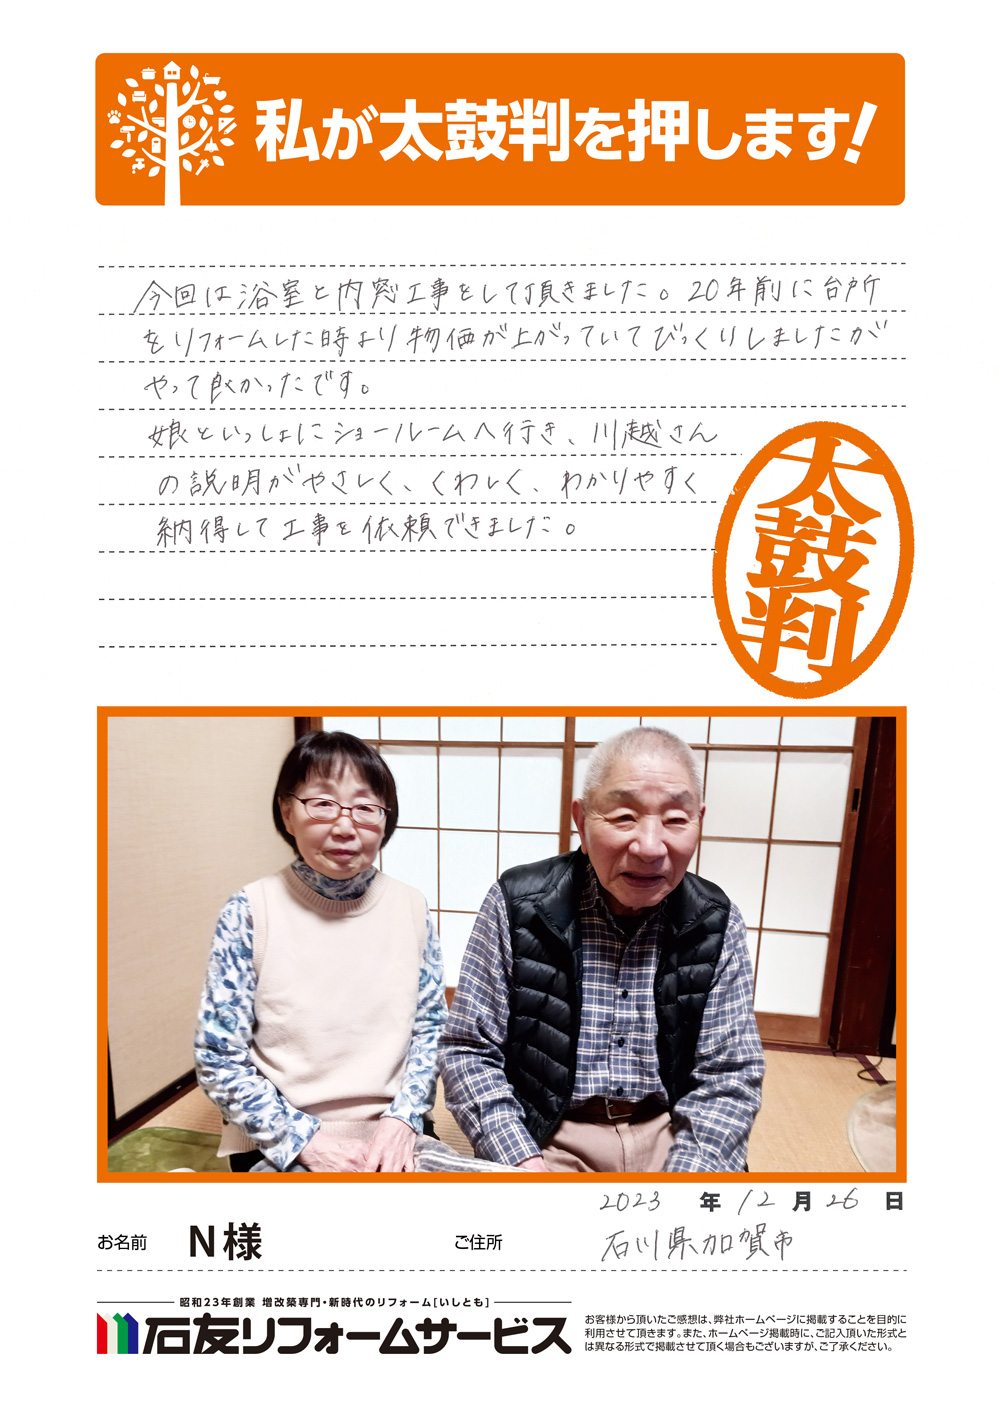 私が太鼓判を押します!
今回は浴室と内窓工事をして頂きました。20年前に台所
をリフォームした時より物価が上がっていてびっくりしましたが
やって良かったです。
娘といっしょにショールームへ行き、川越さん
の説明がやさしく、くわしく、わかりやすく
納得して工事を依頼できました。
太鼓判
2023 年 12 月 26 日
お名前 N様 ご住所 石川県加賀市
昭和23年創業 増改築専門・新時代のリフォーム[いしとも]
石友リフォームサービス
お客様から頂いたご感想は、弊社ホームページに掲載することを目的に
利用させて頂きます。また、ホームページ掲載時に、ご記入頂いた形式と
は異なる形式で掲載させて頂く場合もございますが、ご了承ください。